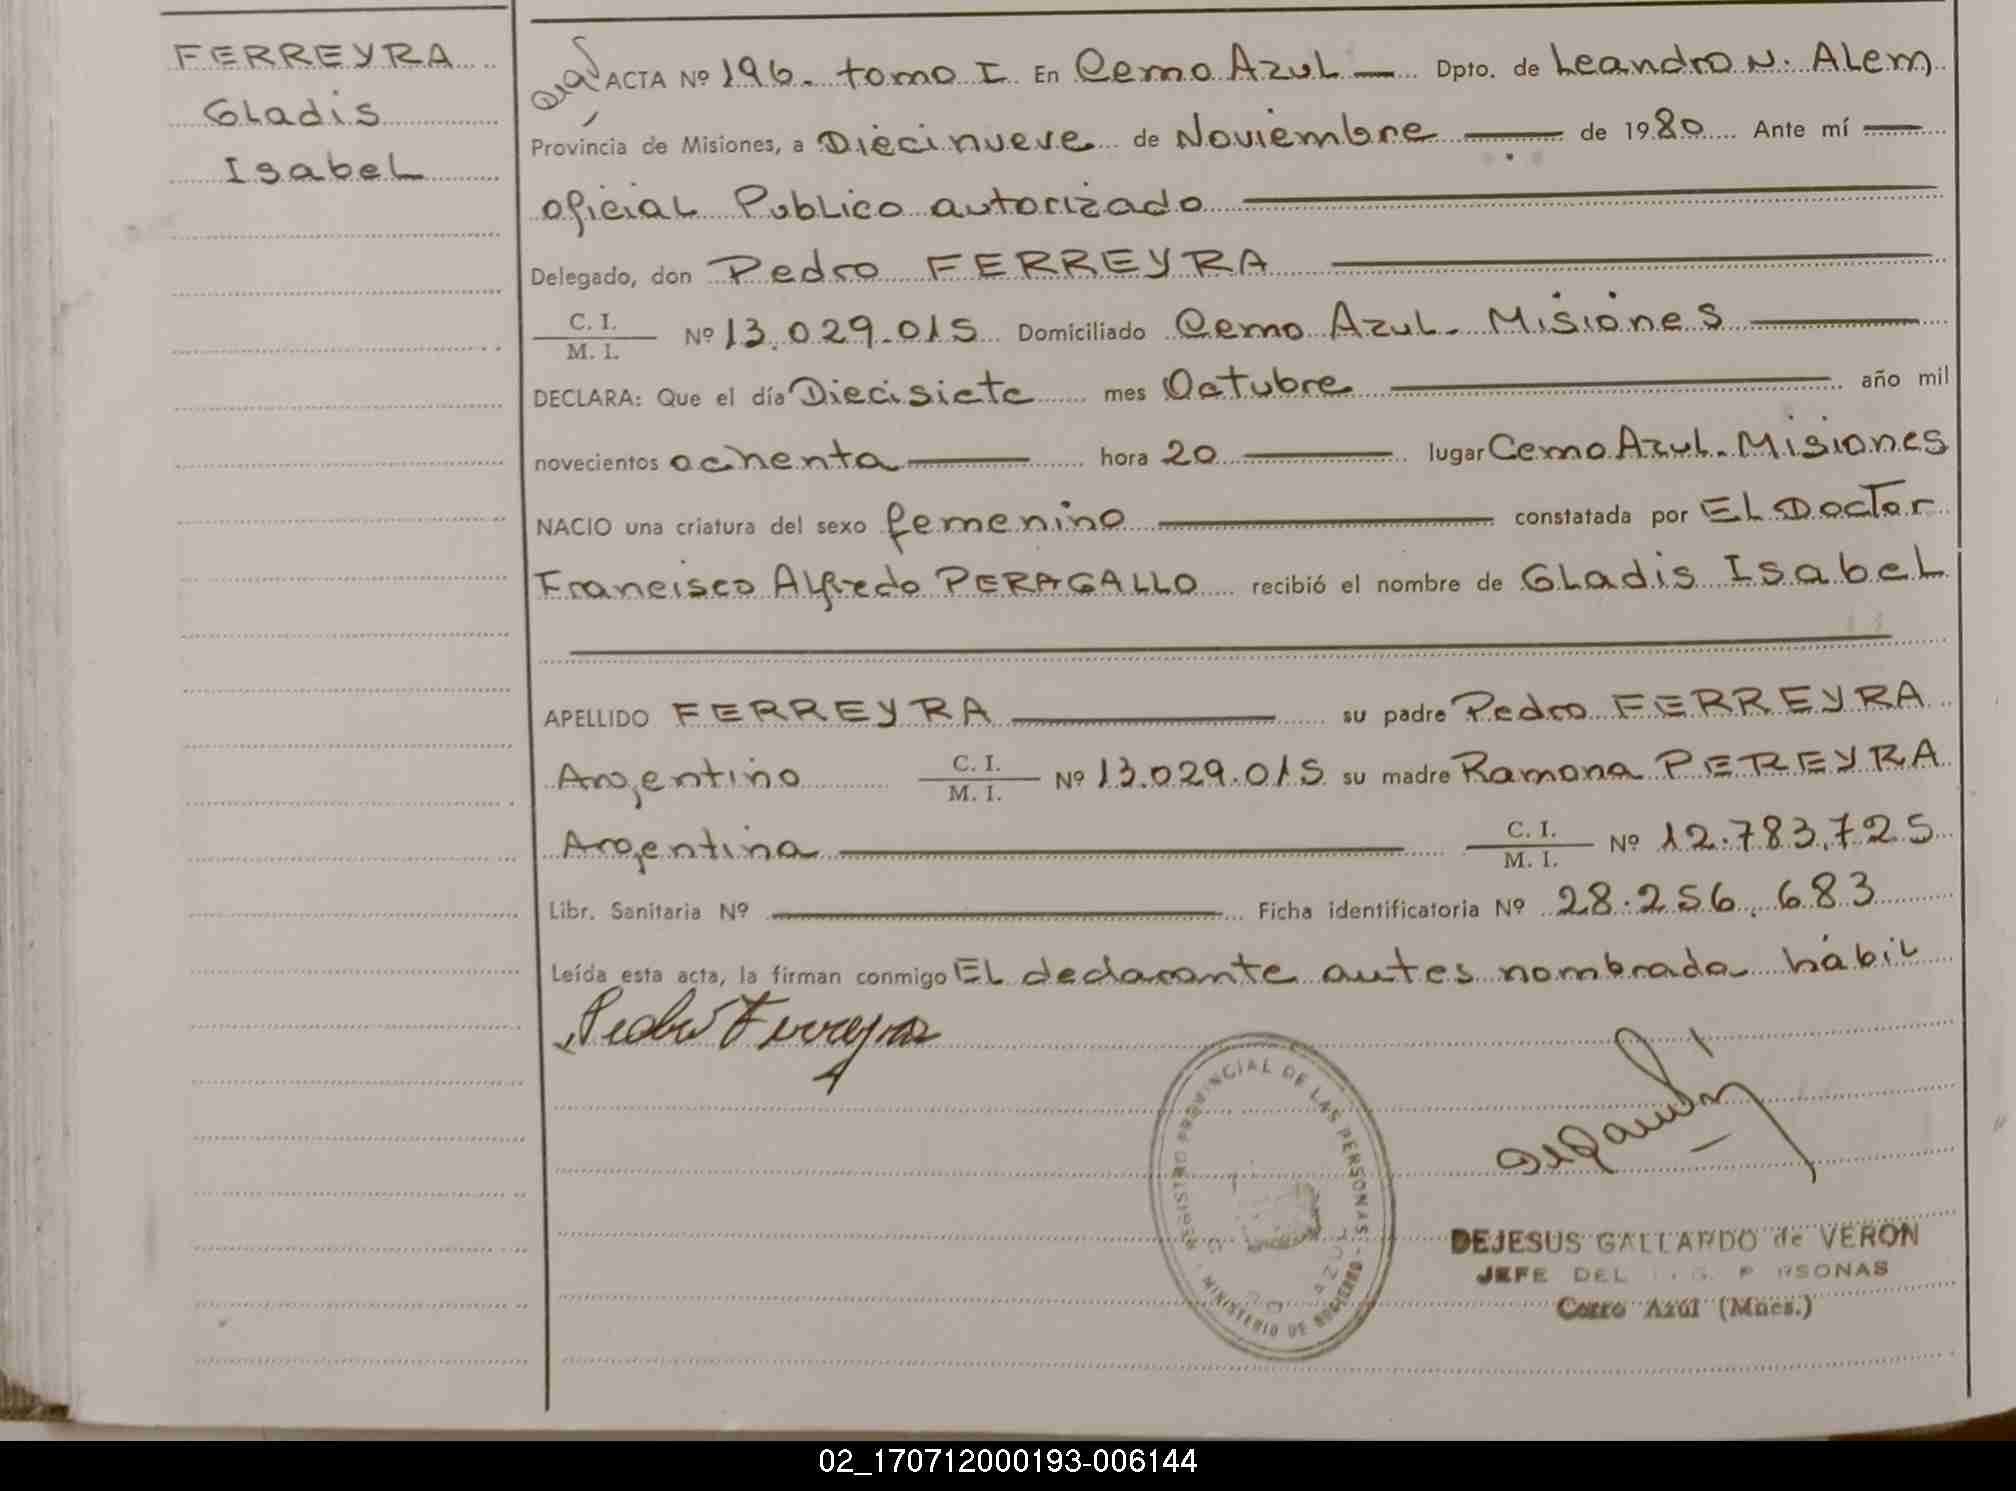 FERREYRA
Gladis
Isabel
ACTA Nº 196. tomo I En Cerro Azul — Dpto. de Leandro N. Alem
Provincia de Misiones, a Diecinueve de Noviembre — de 1980 Ante mí —
oficial Publico autorizado —
Delegado, don Pedro FERREYRA —
C. I.
M. I. Nº 13.029.015 Domiciliado Cerro Azul - Misiones —
DECLARA: Que el día Diecisiete mes Octubre — año mil
novecientos ochenta — hora 20 — lugar Cerro Azul - Misiones
NACIO una criatura del sexo femenino — constatada por El Doctor
Francisco Alfredo PERAGALLO recibió el nombre de Gladis Isabel
APELLIDO FERREYRA — su padre Pedro FERREYRA
Argentino C. I. / M. I. Nº 13.029.015 su madre Ramona PEREYRA
Argentina — C. I. / M. I. Nº 12.783.725
Libr. Sanitaria Nº — Ficha identificatoria Nº 28.256.683
Leída esta acta, la firman conmigo El declarante antes nombrado hábil
Pedro Ferreyra
REGISTRO PROVINCIAL DE LAS PERSONAS - MINISTERIO DE GOBIERNO
DEJESUS GALLARDO de VERON
JEFE DEL PERSONAS
Cerro Azúl (Mnes.)
02_170712000193-006144